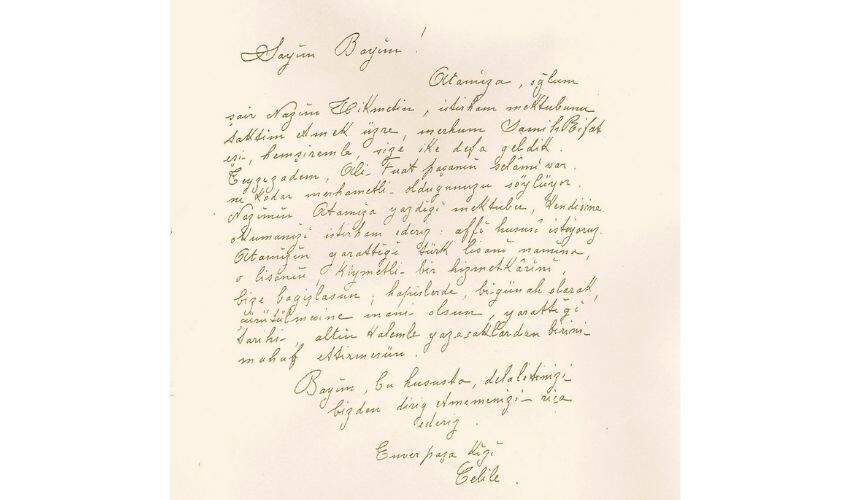 Sayın Bayım!
Atamıza, oğlum
şair Nazım Hikmetin, istirham mektubunu
takdim etmek üzre, merhum Samih Rifat
eşi, hemşiremle, size ike defa geldik.
Teyzezadem, Ali Fuat paşanın selâmi var.
ne kadar merhametli olduğunuzu söylüyor.
Nazımın Atamıza yazdığı mektubu, Kendisine
okumanızı istirham ederiz: affı hususi istiyoruz.
Atamızın yarattığı türk lisanı namına,
o lisanın, kıymetli bir hizmetkârını,
bize bağışlasın; hapislerde, bigünah olarak,
çürütülmesine mani olsun, yarattığı
tarihi, altın Kalemle yazacaklardan birini
mahaf ettirmesün.
Bayım, bu hususta, delaletinizi
bizden diriğ etmemenizi rica
ederiz.
Enver paşa Kızı
Celile.